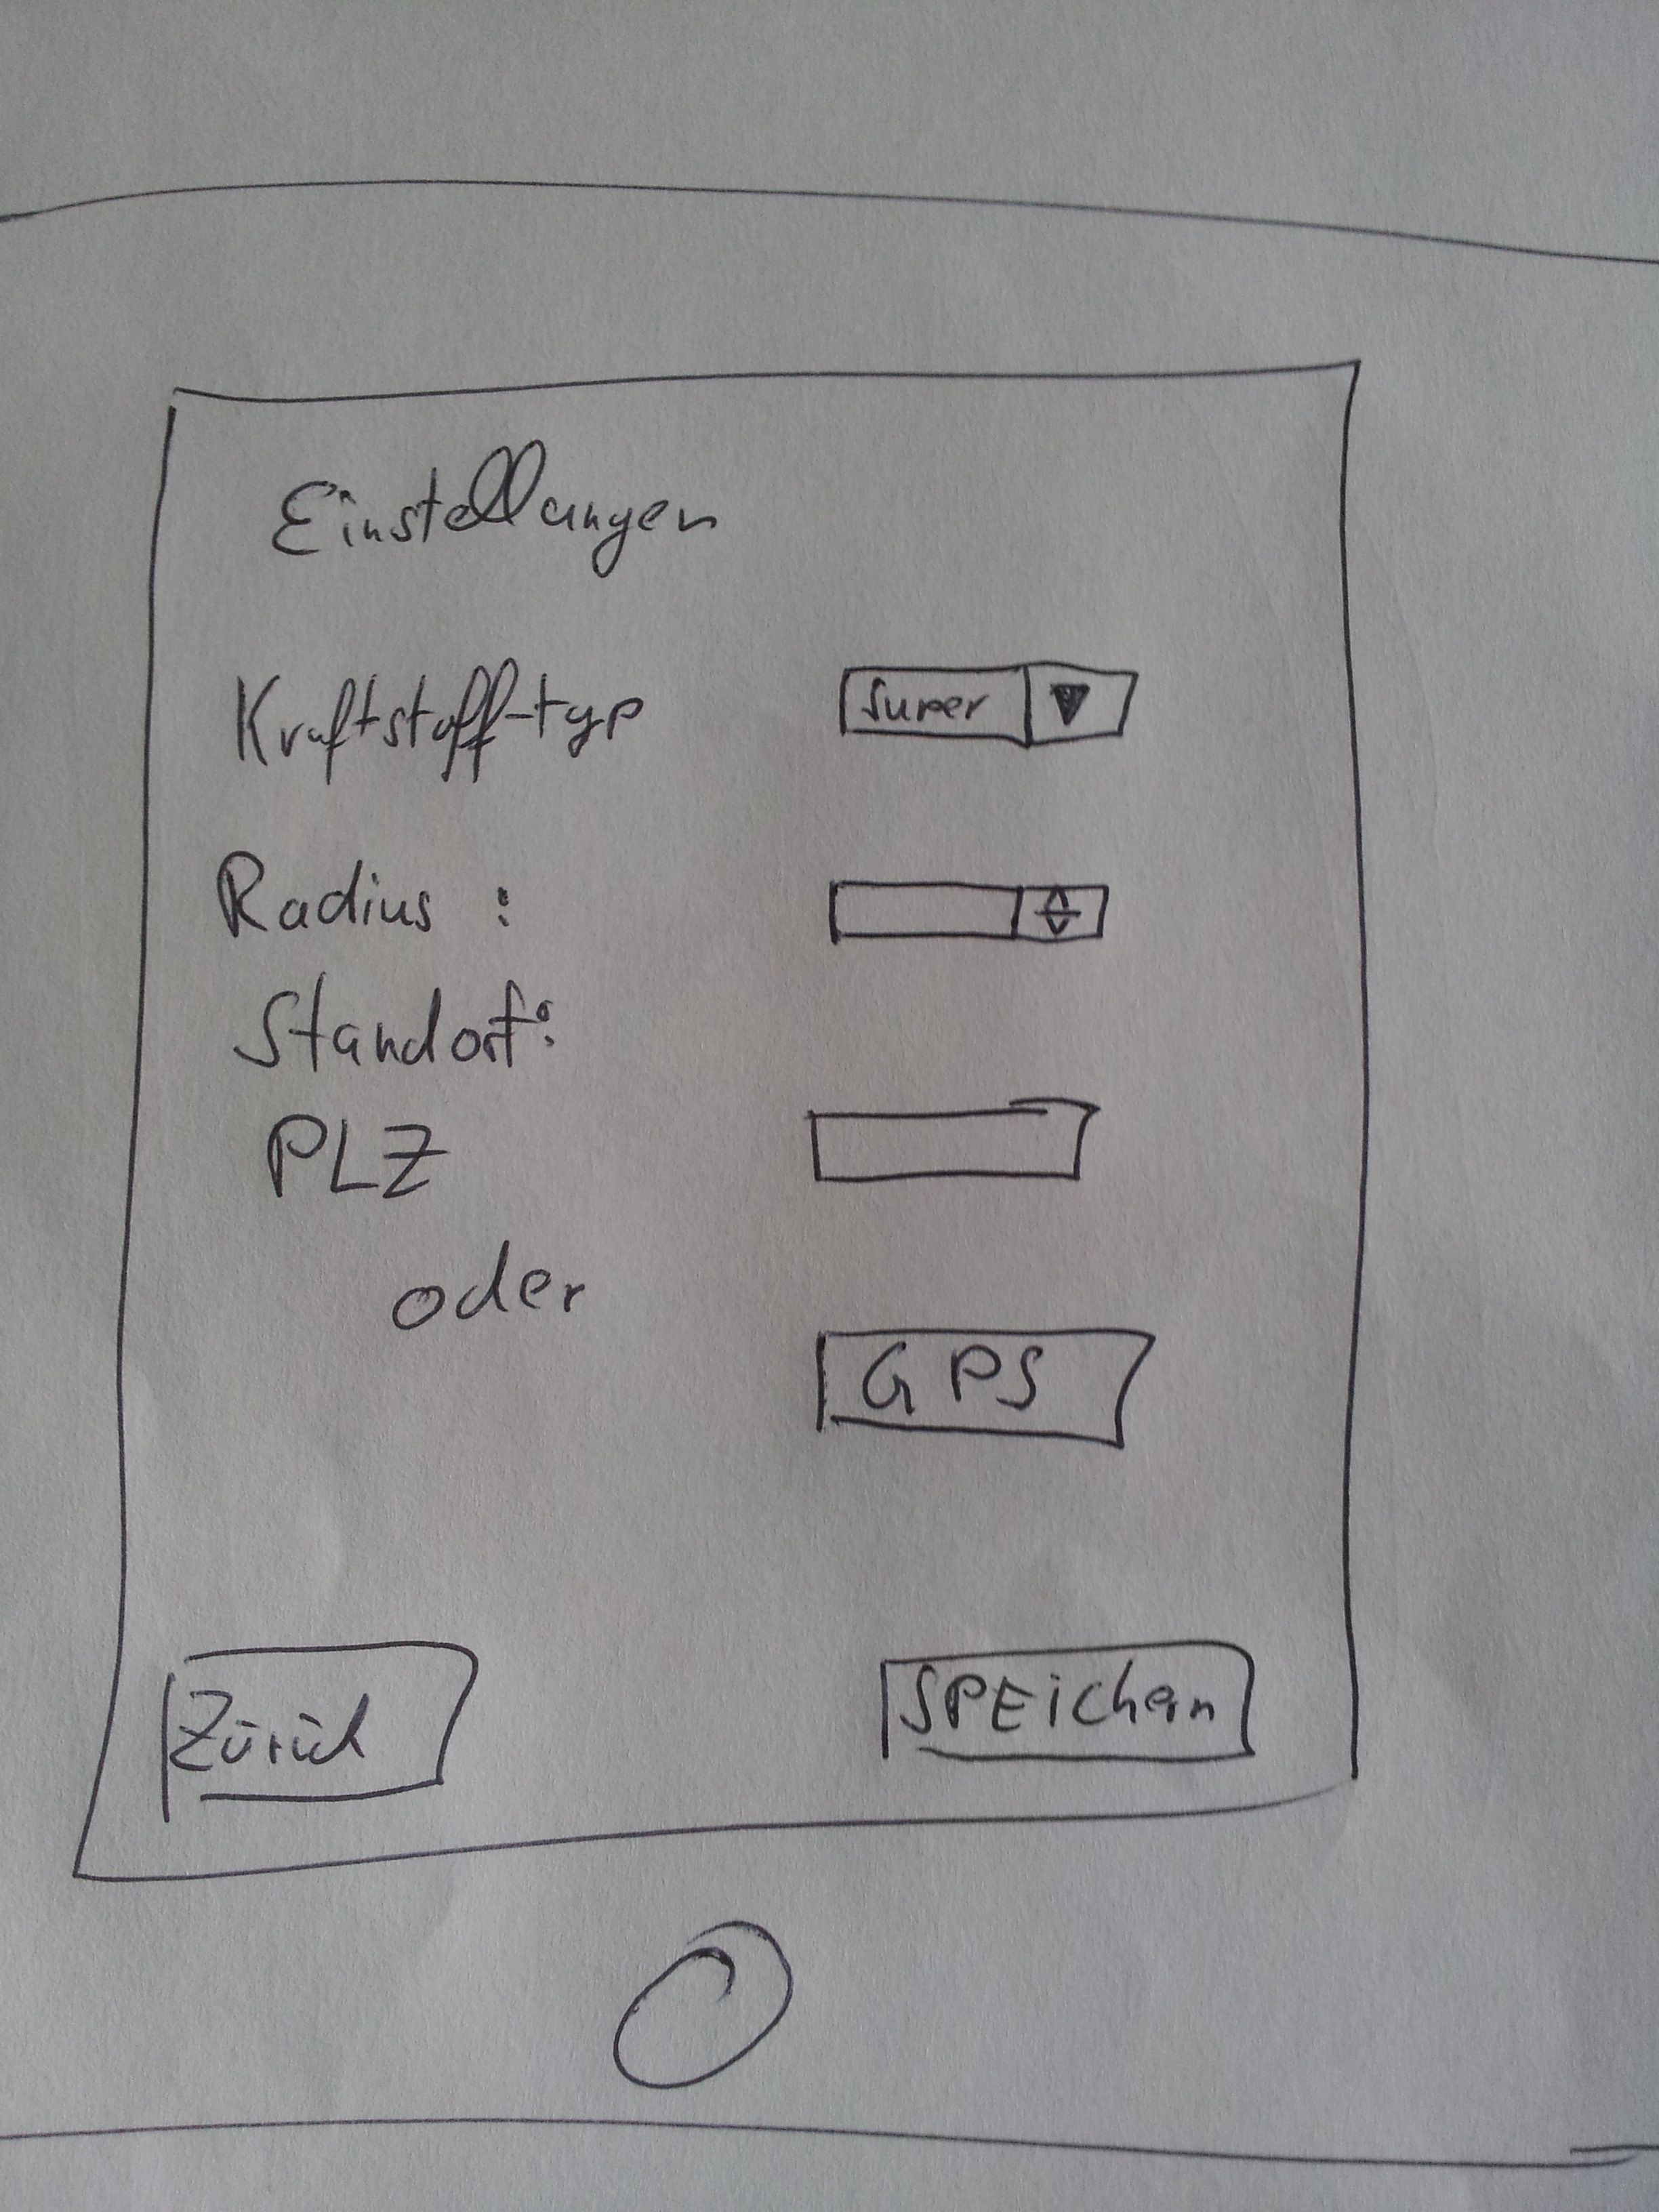 Einstellungen
Kraftstoff-typ Super
Radius :
Standort:
PLZ
oder
GPS
Zurück SPEichern